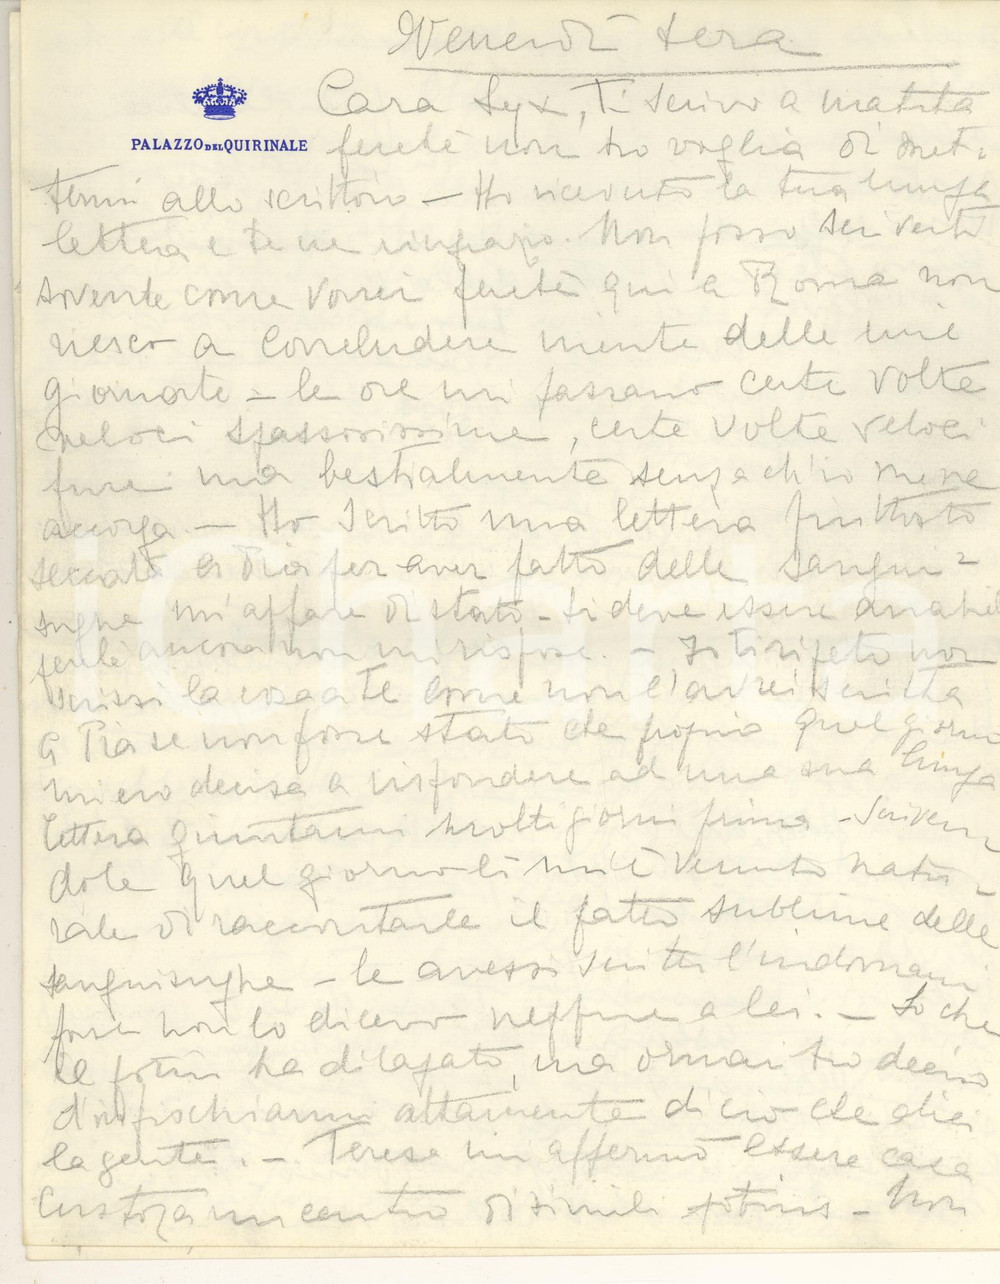 Venerdì sera
PALAZZO DEL QUIRINALE
Cara Lyx, Ti scrivo a matita
perché non ho voglia di met-
termi allo scrittoio — Ho ricevuto la tua lunga
lettera e te ne ringrazio. Non posso scriverti
sovente come vorrei perché qui a Roma non
riesco a concludere niente delle mie
giornate — le ore mi passano certe volte
veloci spassosissime, certe volte veloci
pure ma bestialmente senza ch'io me ne
accorga — Ho scritto una lettera piuttosto
seccata a Pia per aver fatto delle sangui-
sughe un'affare di stato — si deve essere
perché ancora non mi rispose. — Io ti ripeto non
scrissi la cosa a te come non l'avrei scritta
a Pia se non fosse stato che proprio quel giorno
mi ero decisa a rispondere ad una sua lunga
lettera giuntami molti giorni prima — Scriven-
dole quel giorno lì mi è venuto natu-
rale di raccontarle il fatto sublime delle
sanguisughe — le avessi scritto l'indomani
forse non lo dicevo neppure a lei. — So che
il ha dilagato, ma ormai ho deciso
d'infischiarmi altamente di ciò che dice
la gente. — Teresa mi affermò essere casa
un centro di simili — Non